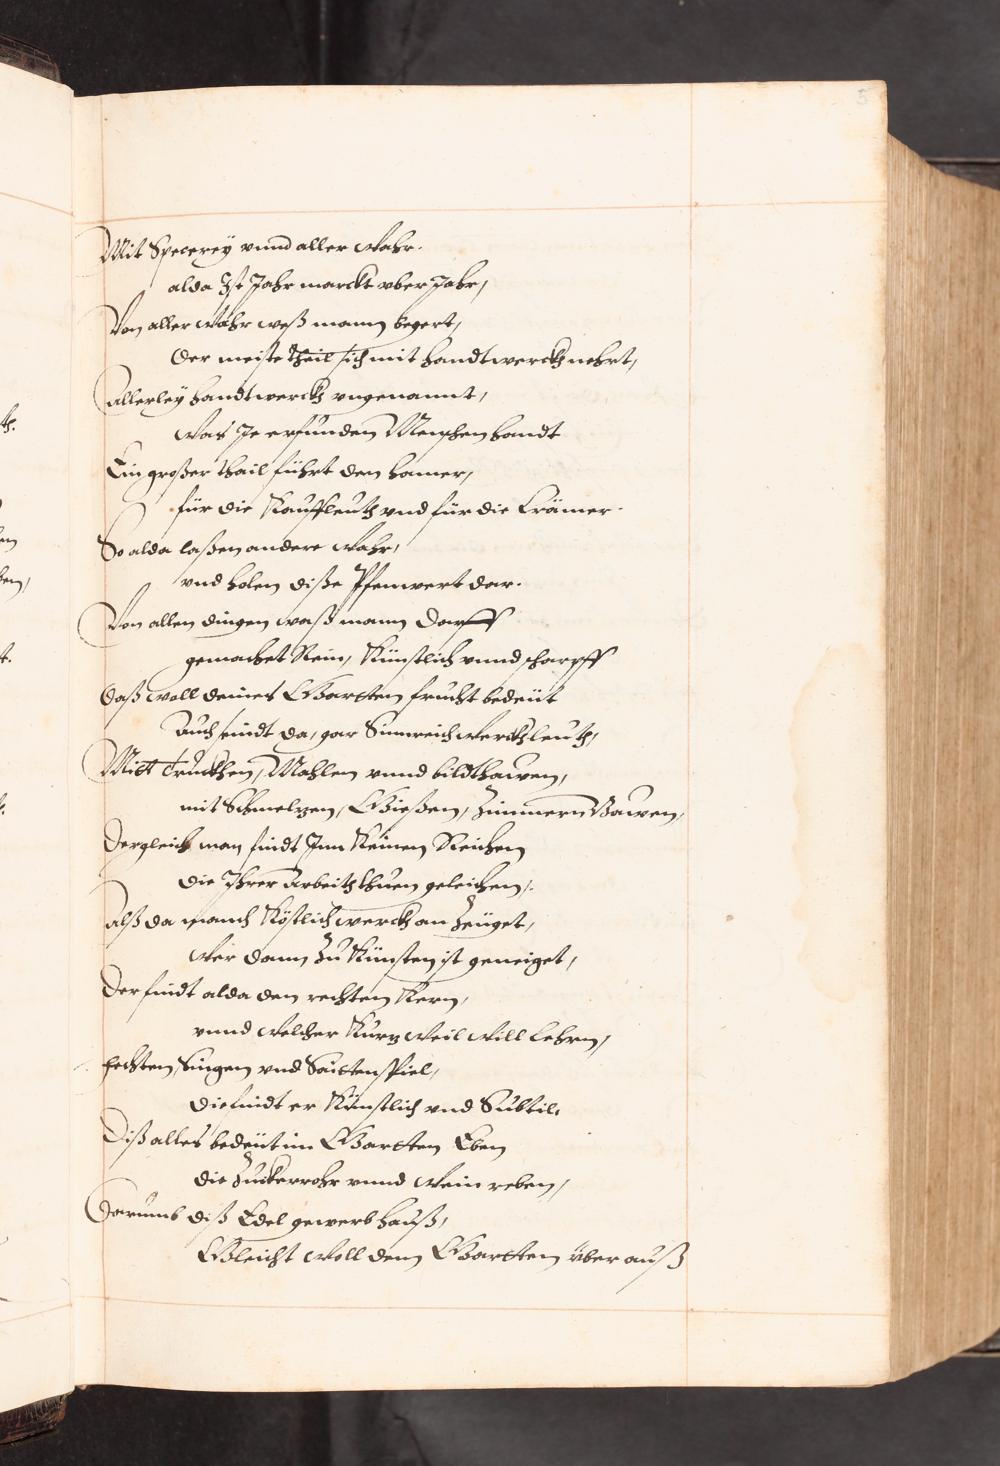 5
Mit Specerey vnnd aller Wahr.
alda Ist Jahr marckt vber Jahr,
Von aller Wahr weß mann begert,
Der meiste theil sich mit handtwerckh nehrt,
Allerley handtwerckh vngenannt,
Was Je erfunden Menschen handt
Ein großer thail führt den hamer,
für die Kauffleuth vnd für die Crämer.
So alda laßen andere Wahr,
vnd holen diße Pfenwert dar.
Von allen dingen waß mann darff
gemachet Rein, Künstlich vnnd scharpff
Daß woll deines Gartten frucht bedeüt
Auch sindt da, gar Sinnreich Werckhleuth,
Mitt Truckhen, Mahlen vnnd bildthawen,
mit Schmelzen, Gießen, Zimmern Bawen,
Dergleich man findt Inn Keinen Reichen
die Ihrer Arbeith thuen geleichen,
Alß da manch Köstlich werckh an Zeüget,
Wer dann Zu Künsten ist geneiget,
Der findt alda den rechten Kern,
vnnd Welcher Kurzweil will Lehrn,
fechten, Singen vnd Saittenspiel,
Die findt er Künstlich vnd Subtil,
Diß alles bedeüt im Gartten Eben
die Zuckerrohr vnnd Wein reben,
Darumb diß Edel gewerb hauß,
Gleicht Woll dem Gartten über auß